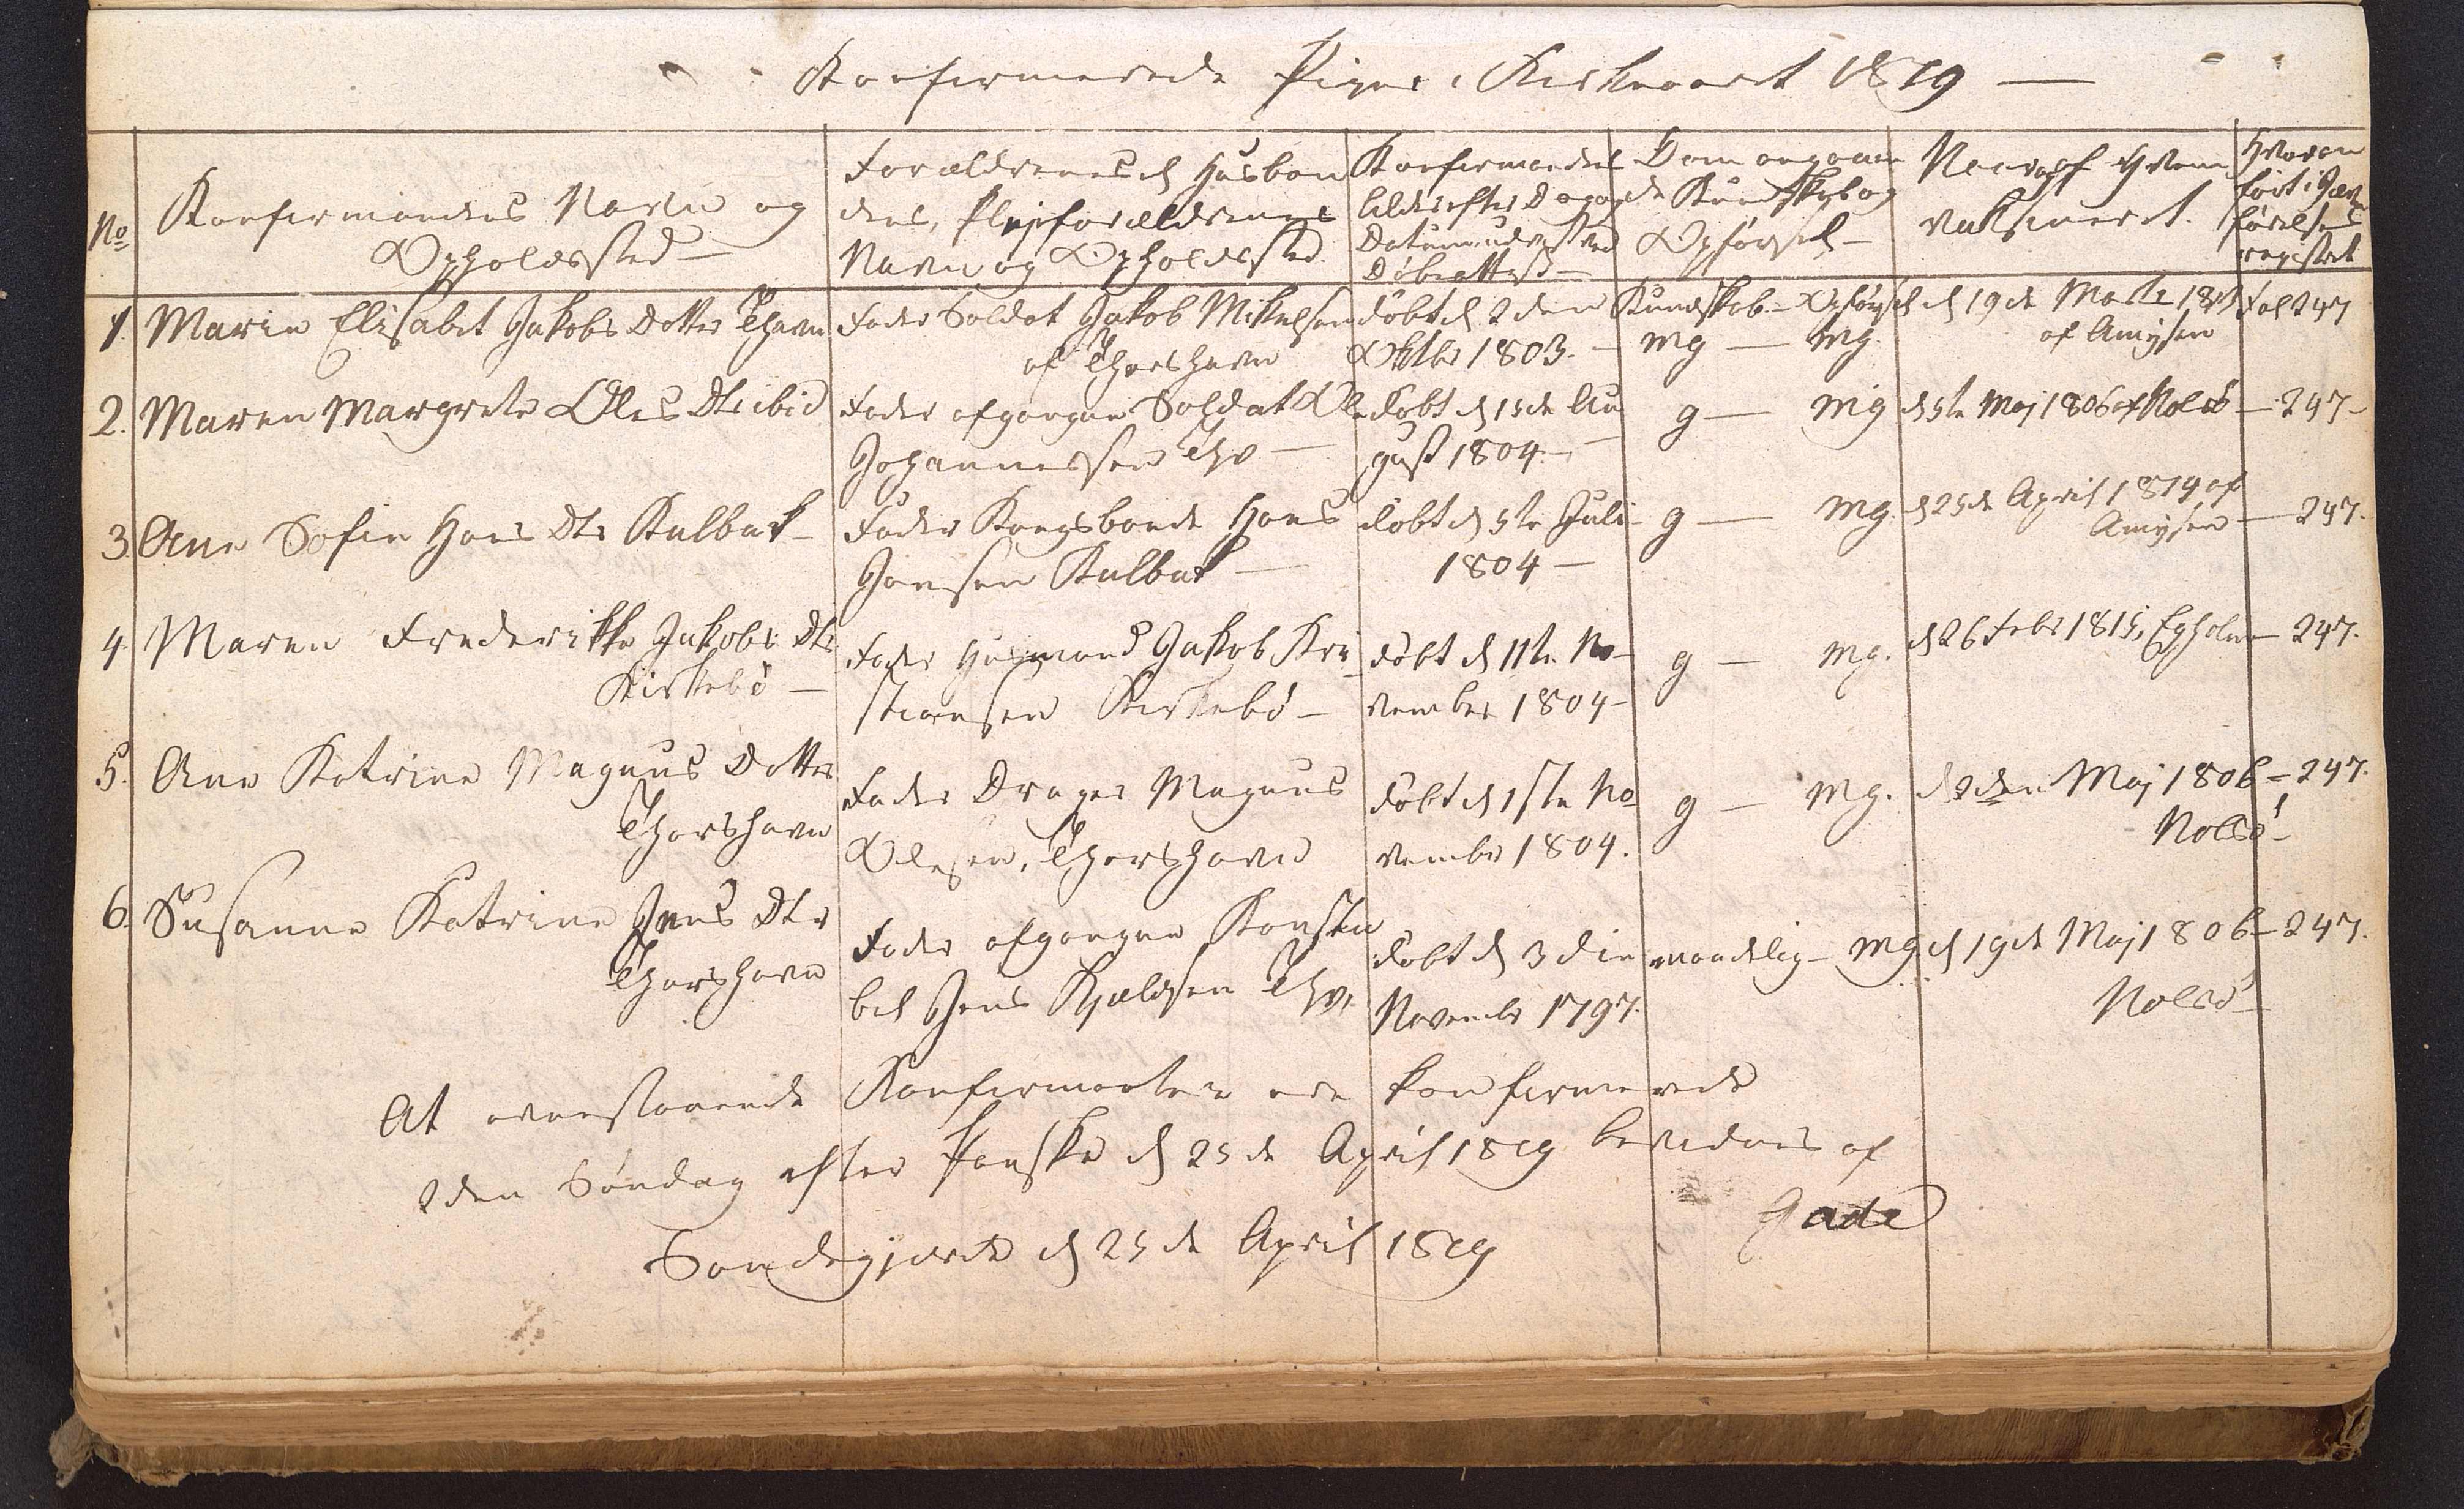 Konfirmerede Piger, Kirkeaaret 1819 —
No
Konfirmandens Navn og
Opholdssted —
Forældrenes el Husbon
dens, Plejeforældrenes
Navn og Opholdssted.
Konfirmandens
Alder efter Dag og
Datum udvist ved
Døbeattest —
Dom angaaen
de Kundskab og
Opførsel —
Naar og af Hvem
vaksineret.
Hvoran
ført i Jævn
førelses
registret
1. Marie Elisabet Jakobs Dotter Thavn
Fader Soldat Jakob Mikkelsen
af Thorshavn
døbt d 2den
Oktbr 1803. —
Kundskab - Opførsel
mg — mg.
d 19de Marts
af Amysen
Fol 247
2. Maren Margrete Oles Dtr ibid
Fader afgangne Soldat Ole
Johannessen Thv —
døbt d 15de Au
gust 1804 —
g — mg
d 5te Maj 1806 af Nolsø
— 247 —
3. Ane Sofie Hans Dtr Kalbak —
Fader Kongsbonde Hans
Joensen Kalbak —
døbt d 5te Juli
1804 —
g — mg.
d 25de April 1819 af
Amysen
— 247.
4. Maren Frederikke Jakobs Dtr
Kirkebø —
Fader Husmand Jakob Kri
stiansen Kirkebø —
døbt d 11te No-
vember 1804 —
g — mg.
d 26 Febr 1815, Egholm
— 247.
5. Ane Katrine Magnus Dotter
Thorshavn
Fader Drager Magnus
Olesen, Thorshavn
døbt d 1ste No
vembr 1804.
g — mg.
d 2den Maj 1806
Nolsø —
— 247.
6. Susanne Katrine Jens Dtr
Thorshavn
Fader afgangne Konsta
bel Jens Kjeldsen Thv.
døbt d 3die
Novembr 1797.
maadelig — mg
d 19de Maj 1806
Nolsø —
— 247.
At ovenstaaende Konfirmanter ere konfirmerede
2den Søndag efter Paaske d 25de April 1819 bevidnes af
Sandegjerde d 25de April 1819
Gade